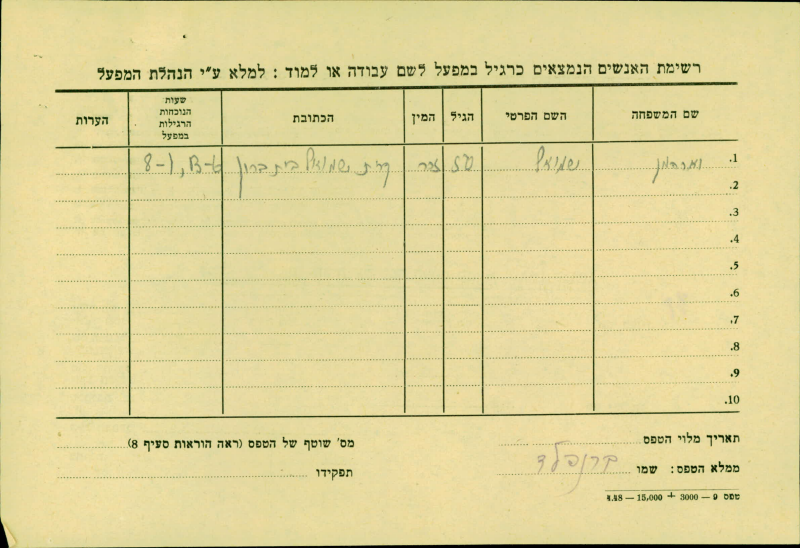 רשימת האנשים הנמצאים כרגיל במפעל לשם עבודה או למוד : למלא ע״י הנהלת המפעל
שם המשפחה השם הפרטי הגיל המין הכתובת שעות הנוכחות הרגילות במפעל הערות
.1 שמואל זכר קרית שמואל בית ברון 8-1
.2
.3
.4
.5
.6
.7
.8
.9
.10
תאריך מלוי הטפס מס' שוטף של הטפס (ראה הוראות סעיף 8)
ממלא הטפס: שמו ברנפלד תפקידו
טפס 9 — 3000 + 15,000 — 4.48